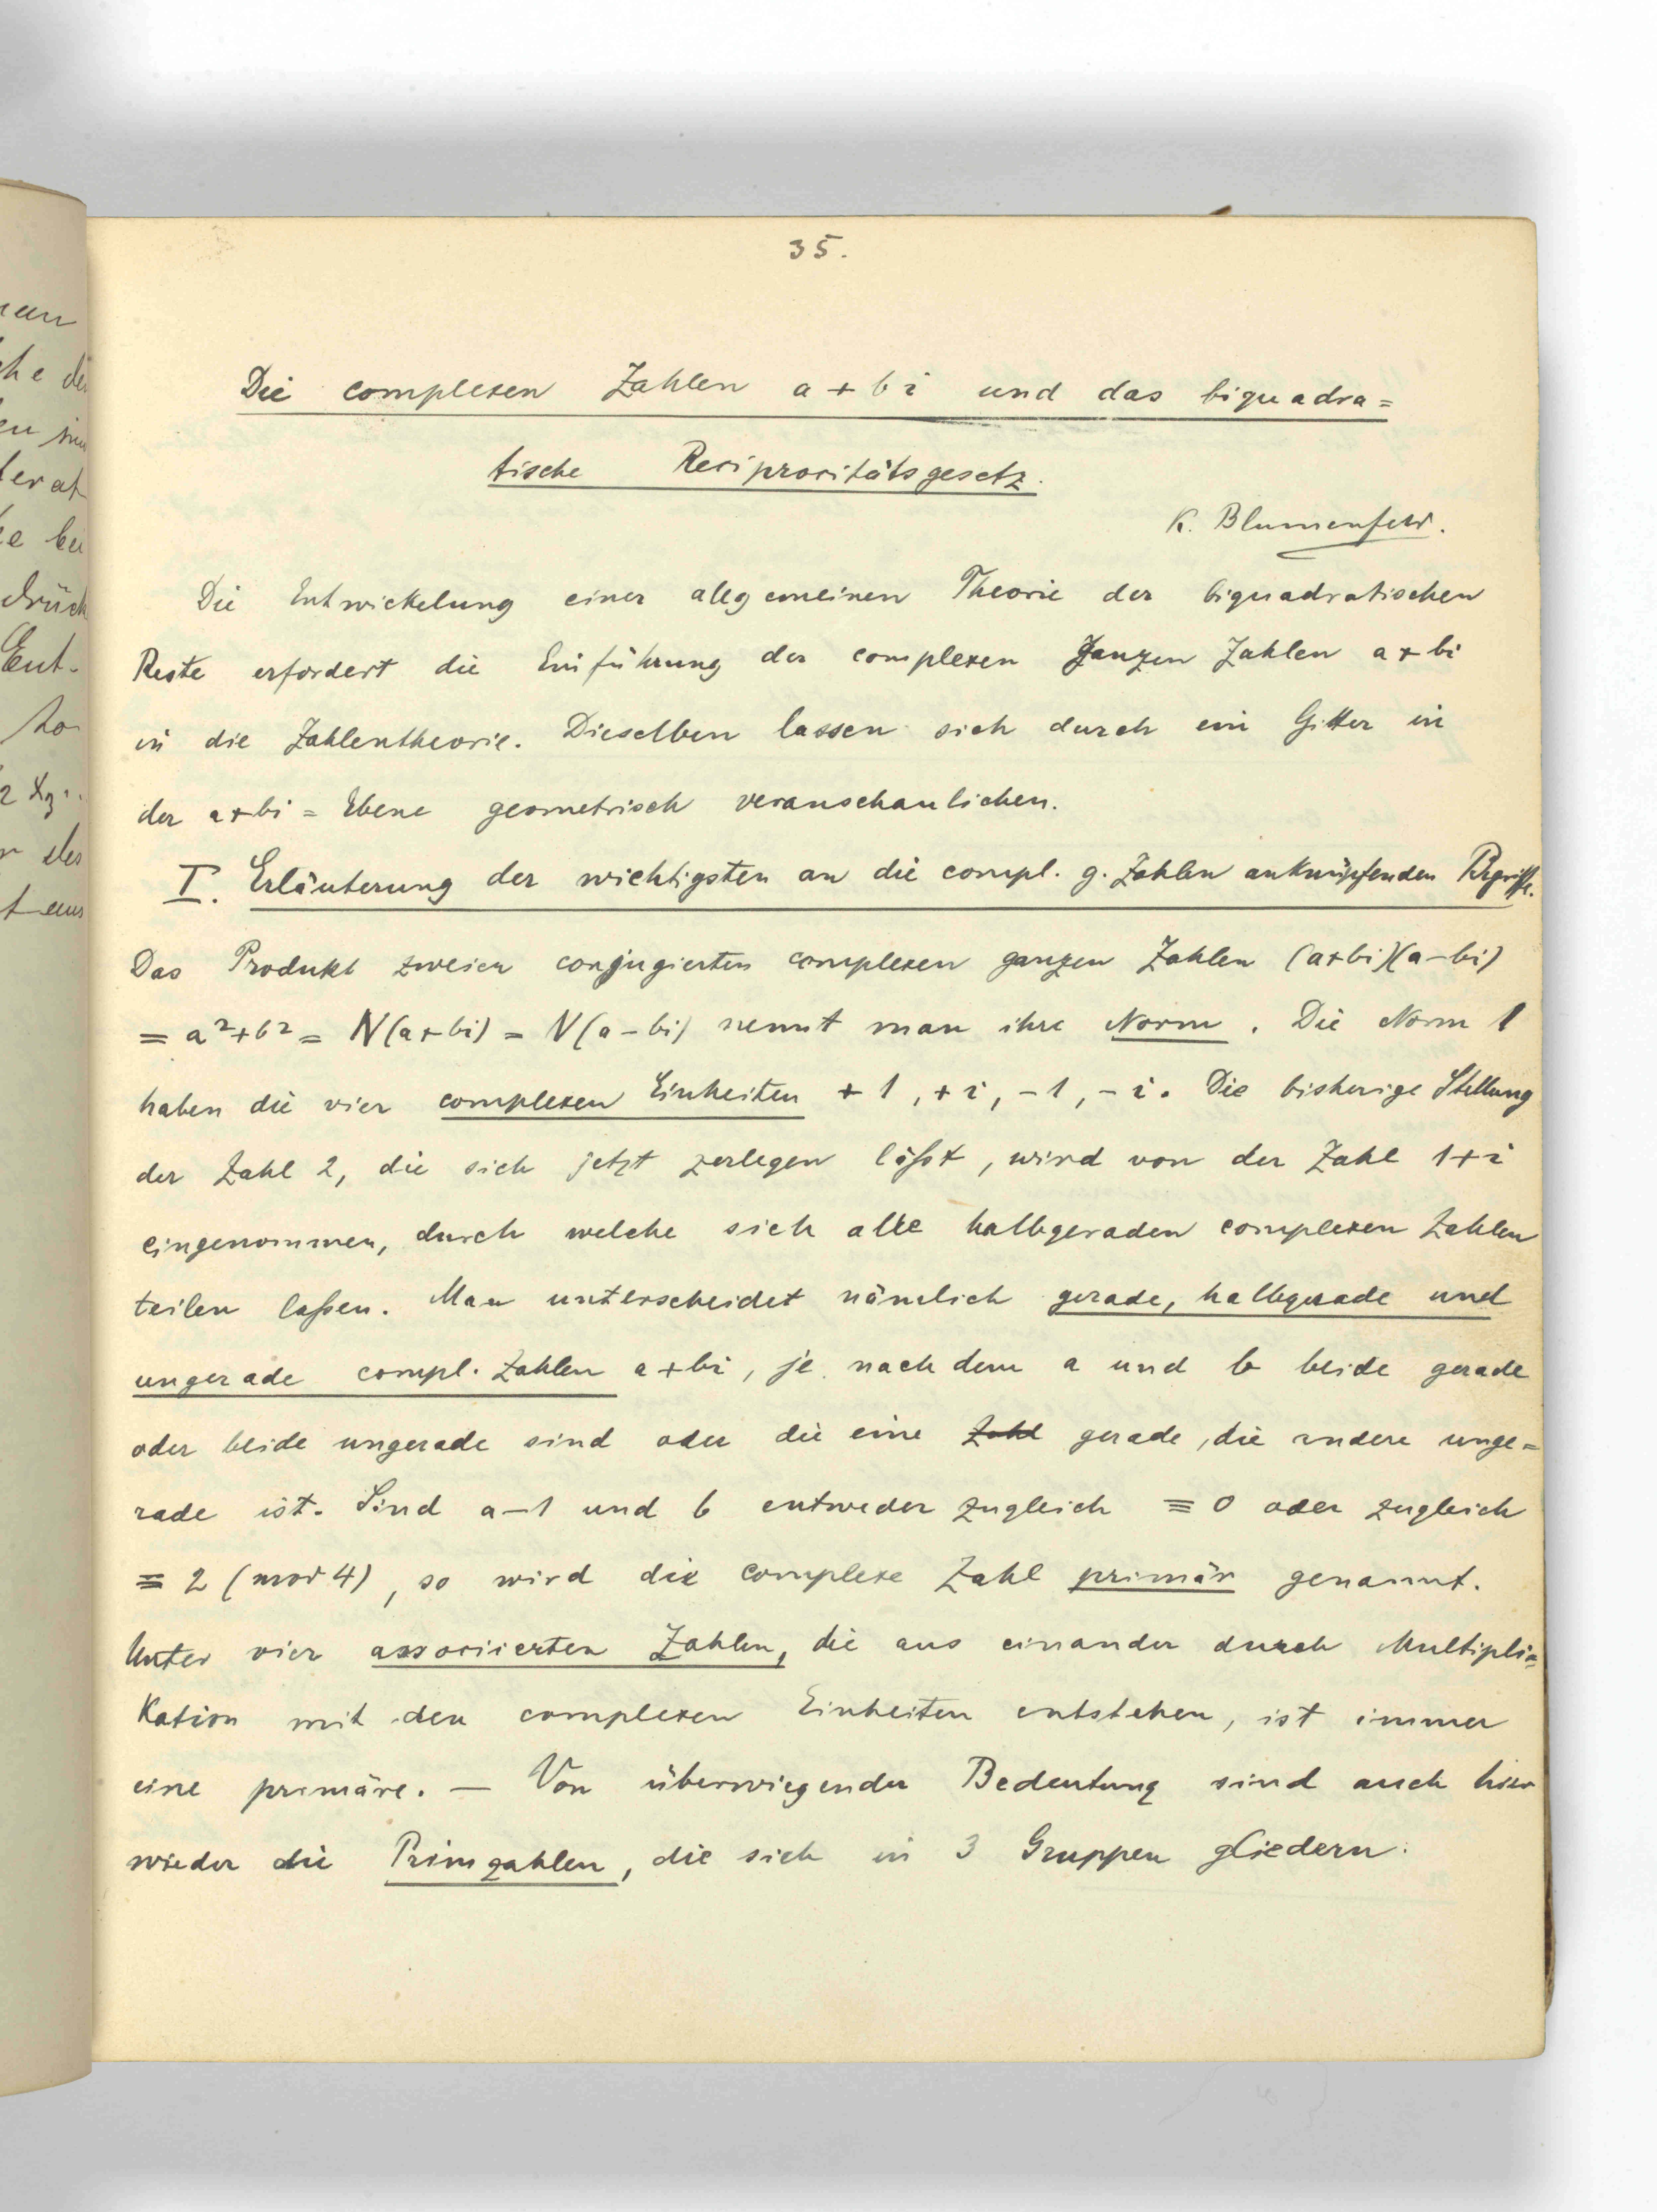 35.
Die complexen Zahlen a+bi und das biquadra=
tische Reciprocitätsgesetz.
K. Blumenfeld.
Die Entwickelung einer allgemeinen Theorie der biquadratischen
Reste erfordert die Einführung der complexen ganzen Zahlen a+bi
in die Zahlentheorie. Dieselben lassen sich durch ein Gitter in
der a+bi = Ebene geometrisch veranschaulichen.
I. Erläuterung der wichtigsten an die compl. g. Zahlen anknüpfenden Begriffe.
Das Produkt zweier conjugierten complexen ganzen Zahlen (a+bi)(a-bi)
= a²+b² = N(a+bi) = N(a-bi) nennt man ihre Norm. Die Norm 1
haben die vier complexen Einheiten +1, +i, -1, -i. Die bisherige Stellung
der Zahl 2, die sich jetzt zerlegen läßt, wird von der Zahl 1+i
eingenommen, durch welche sich alle halbgeraden complexen Zahlen
teilen laßen. Man unterscheidet nämlich gerade, halbgerade und
ungerade compl. Zahlen a+bi, je nachdem a und b beide gerade
oder beide ungerade sind oder die eine Zahl gerade, die andere unge=
rade ist. Sind a-1 und b entweder zugleich ≡ 0 oder zugleich
≡ 2 (mod 4), so wird die complexe Zahl primär genannt.
Unter vier associierten Zahlen, die aus einander durch Multipli=
Kation mit den complexen Einheiten entstehen, ist immer
eine primäre. — Von überwiegender Bedeutung sind auch hier
wieder die Primzahlen, die sich in 3 Gruppen gliedern:
nan
che de
erat
e bei
drück
Ent-
zo
r des
t aus